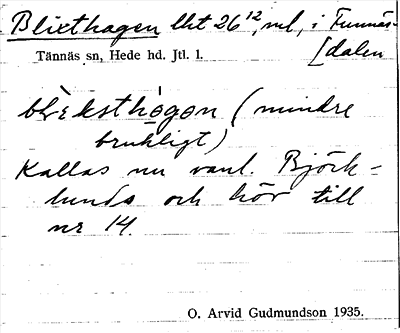 Blixthagen lht 26¹², ml, i Funnäs-
[dalen
Tännäs sn, Hede hd. Jtl. l.
blèksthògọn (mindre
brukligt)
Kallas nu vanl. Björk-
lunds och hör till
nr 14.
O. Arvid Gudmundson 1935.